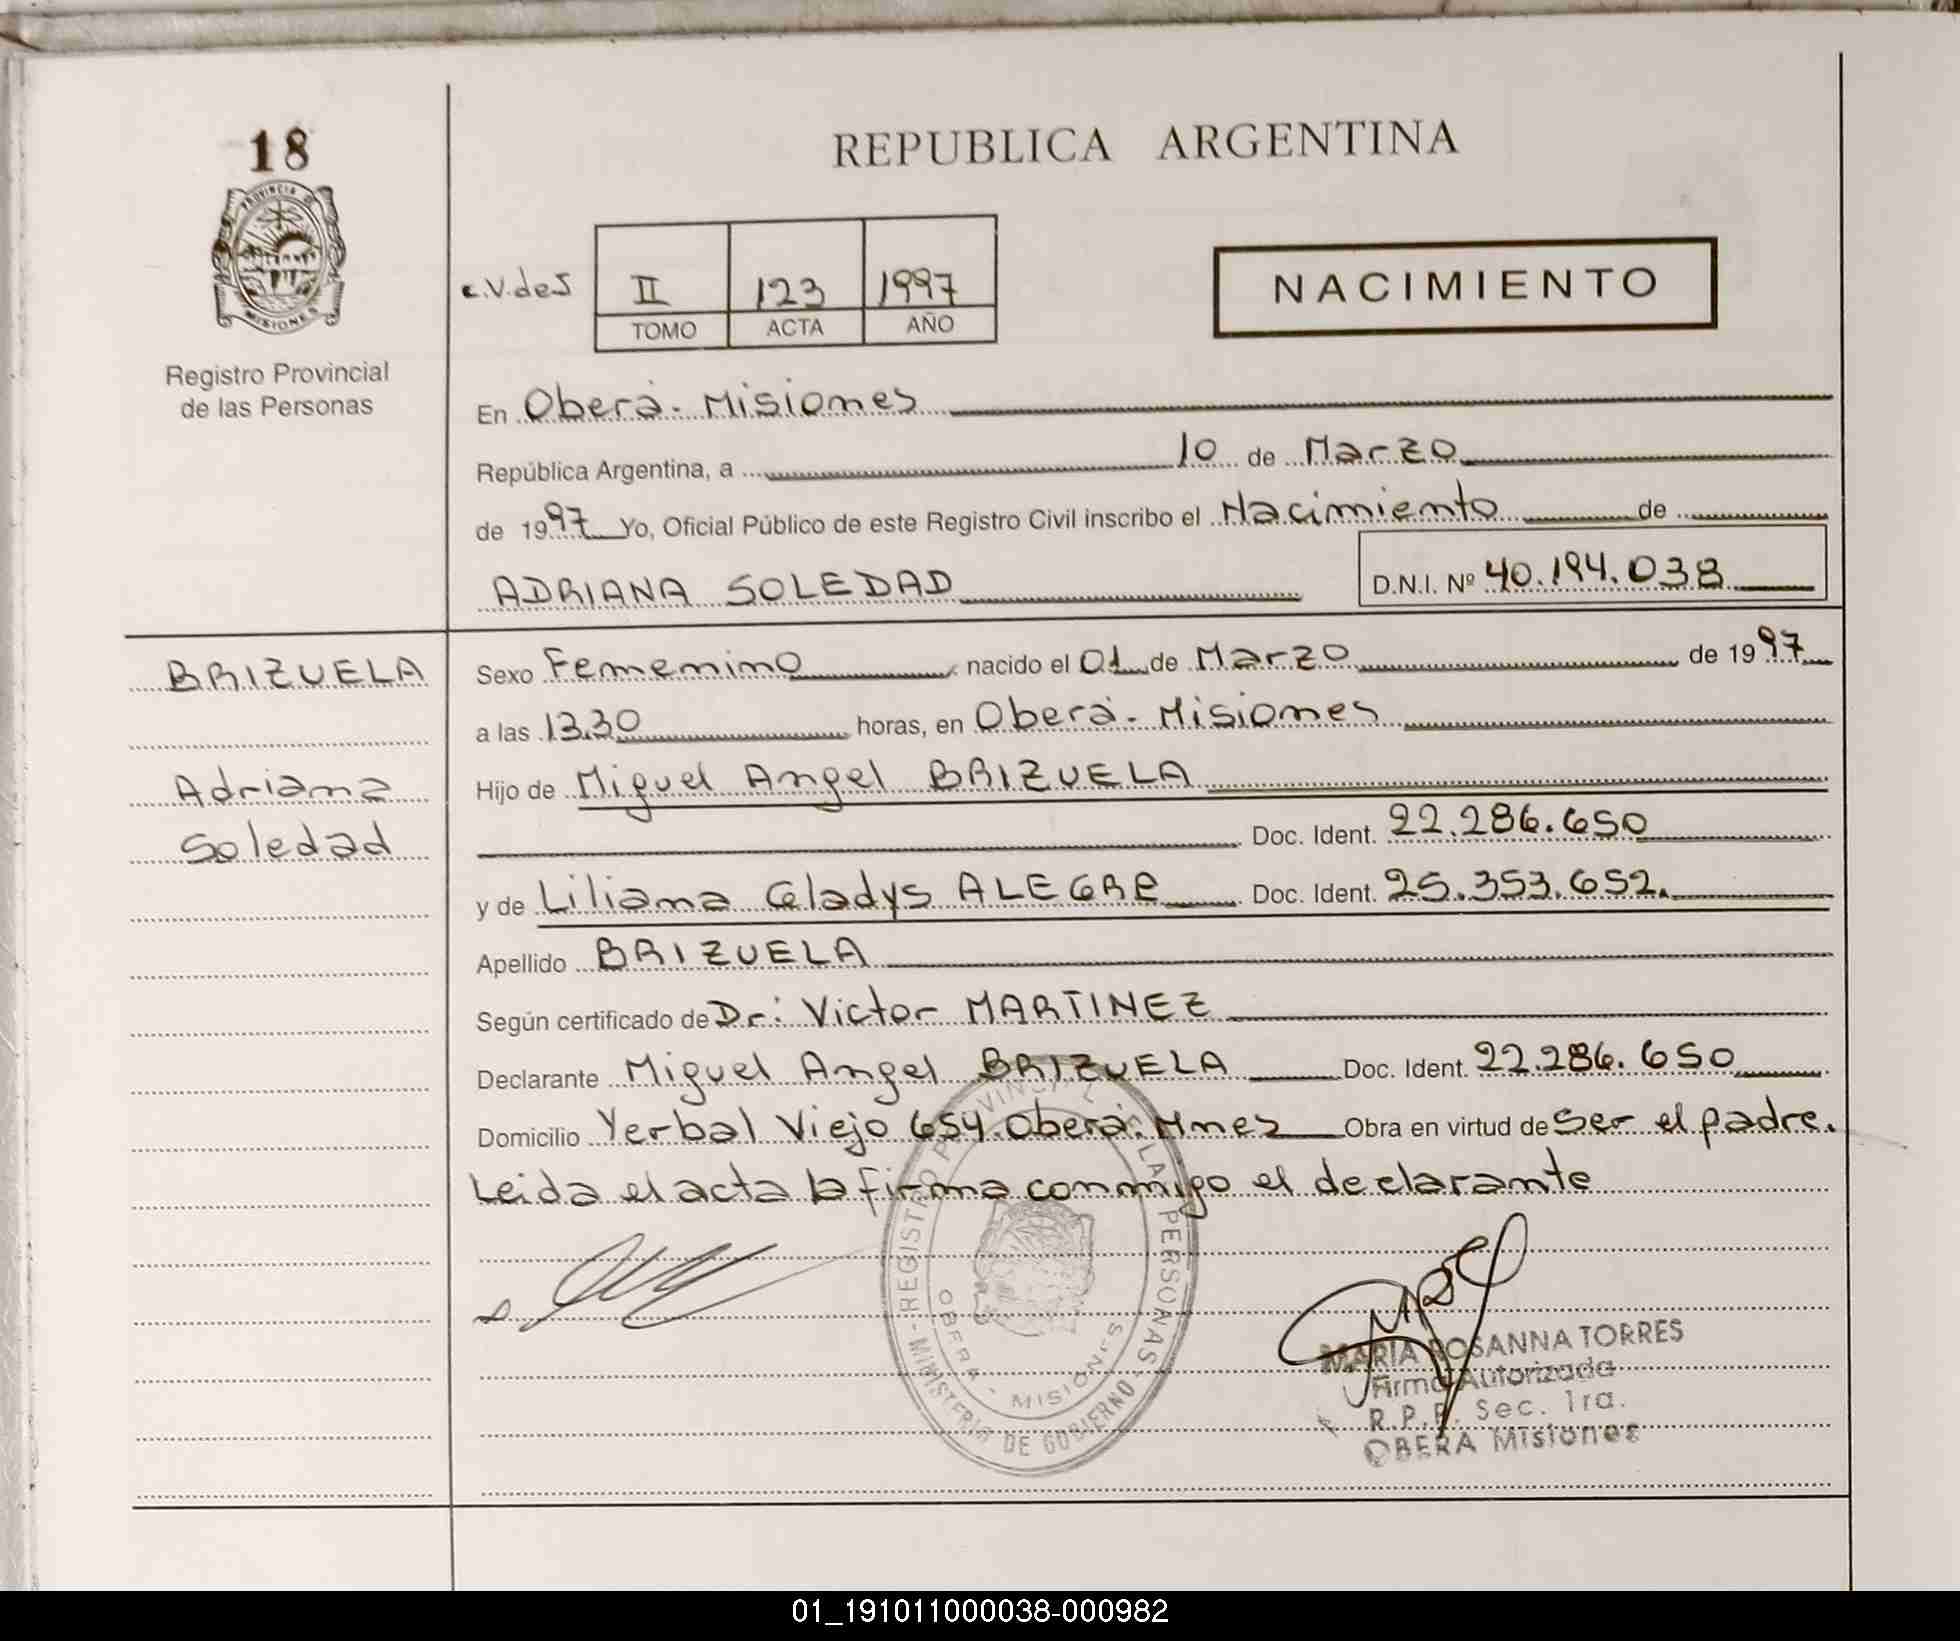 18
PROVINCIA DE
MISIONES
Registro Provincial
de las Personas
REPUBLICA ARGENTINA
c.V.deS
II 123 1997
TOMO ACTA AÑO
NACIMIENTO
En Oberá - Misiones
República Argentina, a 10 de Marzo
de 1997 Yo, Oficial Público de este Registro Civil inscribo el Nacimiento de
ADRIANA SOLEDAD D.N.I. Nº 40.194.038
BRIZUELA
Adriana
Soledad
Sexo Femenino nacido el 01 de Marzo de 1997
a las 13.30 horas, en Oberá - Misiones
Hijo de Miguel Angel BRIZUELA
Doc. Ident. 22.286.650
y de Liliana Gladys ALEGRE Doc. Ident. 25.353.652.
Apellido BRIZUELA
Según certificado de Dr: Victor MARTINEZ
Declarante Miguel Angel BRIZUELA Doc. Ident. 22.286.650
Domicilio Yerbal Viejo 654. Oberá. Mnes Obra en virtud de ser el padre.
Leida el acta la firma conmigo el declarante
REGISTRO PROVINCIAL DE LAS PERSONAS - MINISTERIO DE GOBIERNO -
OBERA - MISIONES
MARIA ROSANNA TORRES
Firma Autorizada
R.P.P. Sec. 1ra.
OBERA Misiones
01_191011000038-000982